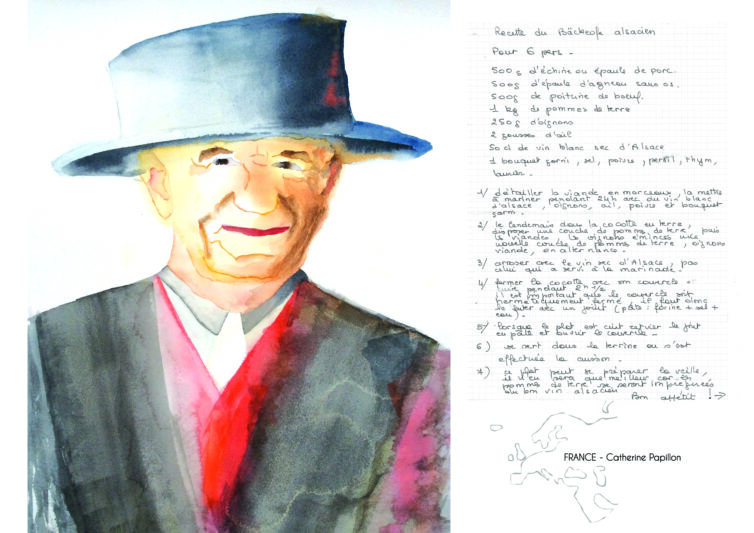 Recette du Bäckeofe alsacien
Pour 6 pers.
500g d'échine ou épaule de porc.
500g d'épaule d'agneau sans os.
500g de poitrine de boeuf.
1 kg de pommes de terre
250g d'oignons
2 gousses d'ail
50 cl de vin blanc sec d'Alsace
1 bouquet garni, sel, poivre, persil, thym,
laurier.
1/ détailler la viande en morceaux, la mettre
à mariner pendant 24h avec du vin blanc
d'alsace, oignons, ail, poivre et bouquet
garni.
2/ le lendemain dans la cocotte en terre,
disposer une couche de pommes de terre, puis
la viande, les oignons émincés une
nouvelle couche de pommes de terre, oignons
viande, en alternance.
3/ arroser avec le vin sec d'Alsace, pas
celui qui a servi à la marinade.
4/ fermer la cocotte avec son couvercle =
cuire pendant 2h 1/2
il est important que le couvercle soit
hermétiquement fermé, il faut donc
le luter avec un joint (pâte: farine + sel +
eau).
5/ lorsque le plat est cuit enlever le joint
en pâte et ouvrir le couvercle.
6) se sert dans la terrine où s'est
effectuée la cuisson.
7) ce plat peut se préparer la veille,
il n'en sera que meilleur car les
pommes de terre se seront imprégnées
du bon vin alsacien
Bon appétit ! →
FRANCE - Catherine Papillon